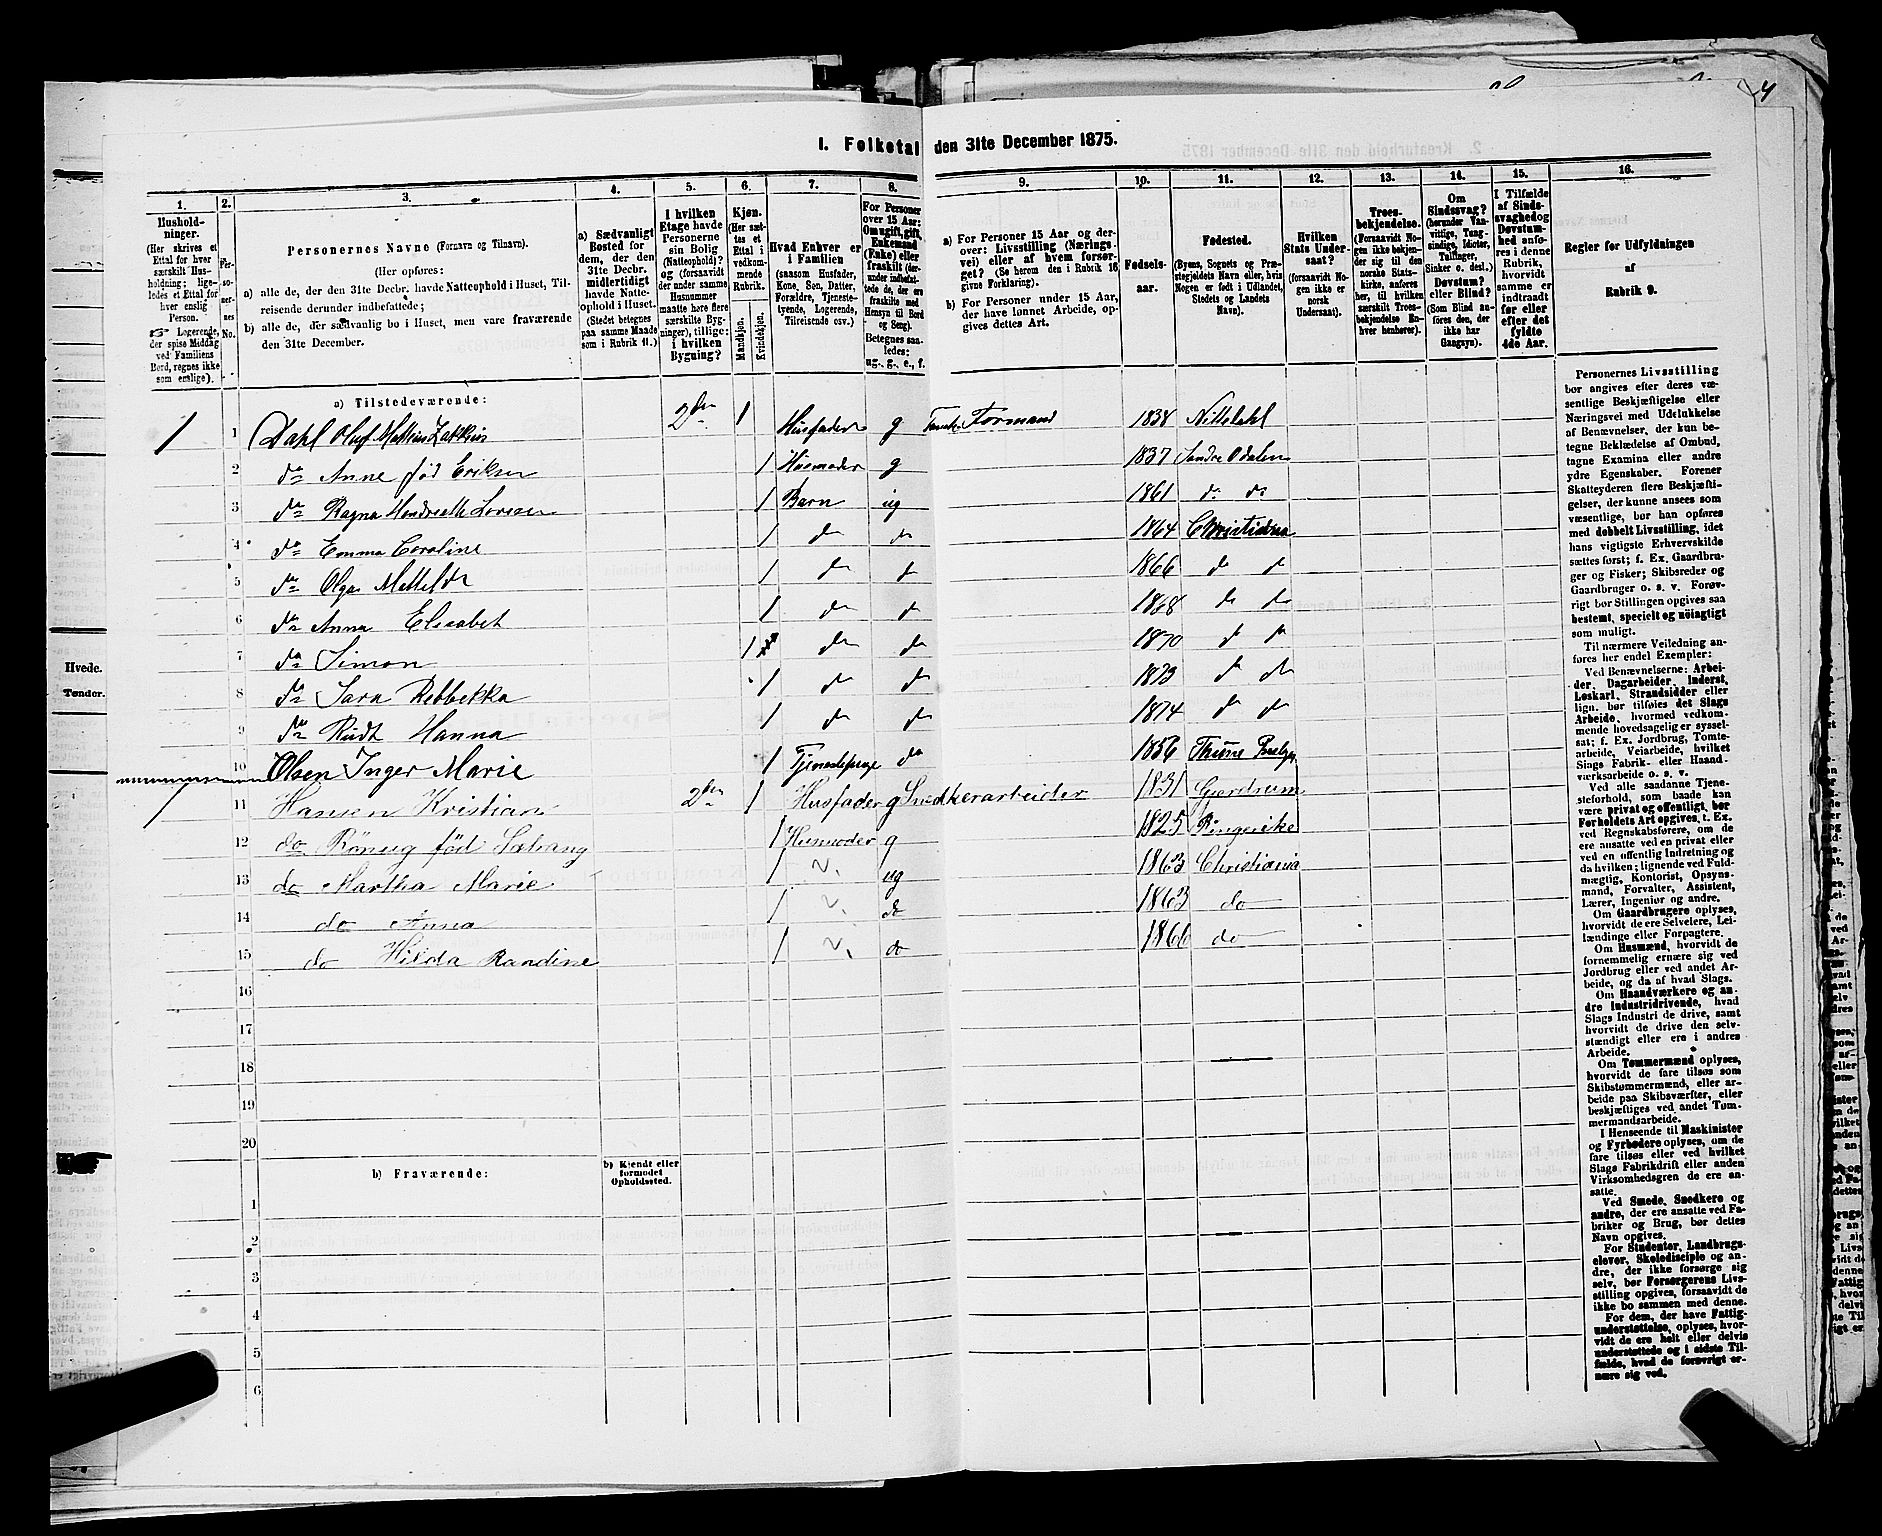 4
1. Folketal den 31te December 1875.
1. 2. 3. 4. 5. 6. 7. 8. 9. 10. 11. 12. 13. 14. 15. 16.
Husholdninger. (Her skrives et Ettal for hver særskilt Husholdning; ligeledes et Ettal for hver enslig Person. Logerende, der spise Middag ved Familiens Bord, regnes ikke som enslige).
Personernes No.
Personernes Navne (Fornavn og Tilnavn).
(Her opføres:
a) alle de, der den 31te Decbr. havde Natteophold i Huset, Tilreisende derunder indbefattede;
b) alle de, der sædvanlig bo i Huset, men vare fraværende den 31te December.
a) Sædvanligt Bosted for dem, der den 31te Decbr. midlertidigt havde Natteophold i Huset. (Stedet betegnes paa samme Maade som i Rubrik 11.)
I hvilken Etage havde Personerne sin Bolig (Natteophold)? og (forsaavidt der under samme Husnummer maatte høre flere særskilte Bygninger), tillige: i hvilken Bygning?
Kjøn. (Her sættes et Ettal i vedkommende Rubrik. Mandkjøn. Kvindekjøn.
Hvad Enhver er i Familien (saasom Husfader, Kone, Søn, Datter, Forældre, Tjenestetyende, Logerende, Tilreisende osv.)
For Personer over 15 Aar: Om ugift, gift, Enkemand (Enke) eller fraskilt (derunder indbefattede de, der ere fraskilte med Hensyn til Bord og Seng). Betegnes saaledes: ug., g., e., f.
a) For Personer 15 Aar og derover: Livsstilling (Næringsvei) eller af hvem forsørget? (Se herom den i Rubrik 16 givne Forklaring).
b) For Personer under 15 Aar, der have lønnet Arbeide, opgives dettes Art.
Fødselsaar.
Fødested. (Byens, Sognets og Præstegjeldets Navn eller, hvis Nogen er født i Udlandet, Stedets og Landets Navn).
Hvilken Stats Undersaat? (forsaavidt Nogen ikke er norsk Undersaat).
Troesbekjendelse. (Forsaavidt Nogen ikke bekjender sig til den norske Statskirke, anføres her, til hvilken særskilt Troesbekjendelse Enhver henhører).
Om Sindssvag? (herunder Vanvittige, Tungsindige, Idioter, Tullinger, Sinker o. desl.) Døvstum? eller Blind? (Som Blind anføres den, der ikke har Gangsyn).
I Tilfælde af Sindssvaghed og Døvstumhed anføres i denne Rubrik, hvorvidt samme er indtraadt før eller efter det fyldte 4de Aar.
Regler for Udfyldningen af Rubrik 9.
a) Tilstedeværende:
1 1 Dahl Oluf Mathias Zakkius 2den 1 Husfader g Formand 1838 Nittedahl
2 do Anne fød Eriksen 1 Husmoder g 1837 Søndre Odalen
3 do Ragna Hendriette Lovise 1 Barn ug 1861 do do
4 do Emma Caroline 1 do do 1864 Christiania
5 do Olga Mathilde 1 do do 1866 do do
6 do Anna Elisabet 1 do do 1868 do do
7 do Simon 1 do do 1870 do do
8 do Sara Rebbekka 1 do do 1873 do do
9 do Rudt Hanna 1 do do 1874 do do
10 Olsen Inger Marie 1 Tjenestepige do 1856
1 11 Hansen Kristian 2den 1 Husfader g Snedkerarbeider 1831 Gjerdrum
12 do Rönnug föd 1 Husmoder g 1825 Ringerike
13 do Martha Marie 1 ug 1863 Christiania
14 do Anna 1 do 1863 do
15 do Hilda Randine 1 do 1866 do
16
17
18
19
20
b) Fraværende:
b) Kjendt eller formodet Opholdssted.
1
2
3
4
5
6
Personernes Livsstilling bør angives efter deres væsentlige Beskjæftigelse eller Næringsvei med Udelukkelse af Benævnelser, der kun betegne Beklædelse af Ombud, tagne Examina eller andre ydre Egenskaber. Forener Skatteyderen flere Beskjæftigelser, der kunne ansees som væsentlige, bør han opføres med dobbelt Livsstilling, idet hans vigtigste Erhvervskilde sættes først; f. Ex. Gaardbruger og Fisker; Skibsreder og Gaardbruger o. s. v. Forøvrigt bør Stillingen opgives saa bestemt, specielt og nöiagtigt som muligt.
Til nærmere Veiledning anføres her endel Exempler:
Ved Benævnelserne: Arbeider, Dagarbeider, Inderst, Løskarl, Strandsidder eller lign. bør tilføies det Slags Arbeide, hvormed vedkommende hovedsagelig er sysselsat; f. Ex. Jordbrug, Tomtearbeide, Veiarbeide, hvilket Slags Fabrik- eller Haandværksarbeide o. s. v.
Ved alle saadanne Tjenesteforhold, som baade kan være private og offentlige, bør Forholdets Art opgives, t. Ex. ved Regnskabsførere, om de ere ansatte ved en privat eller ved en offentlig Indretning og da hvilken; lignende ved Fuldmægtig, Kontorist, Opsynsmand, Forvalter, Assistent, Lærer, Ingeniør og andre.
Om Gaardbrugere oplyses, hvorvidt de ere Selveiere, Leilændinge eller Forpagtere.
Om Husmænd, hvorvidt de fornemmelig ernære sig ved Jordbrug eller ved andet Arbeide, og da af hvad Slags.
Om Haandværkere og andre Industridrivende, hvad Slags Industri de drive, samt hvorvidt de drive den selvstændigt eller ere i andres Arbeide.
Om Tømmermænd oplyses, hvorvidt de fare tilsøs som Skibstømmermænd, eller arbeide paa Skibsværfter, eller beskjæftiges ved andet Tømmermandsarbeide.
I Henseende til Maskinister og Fyrbødere oplyses, om de fare tilsøs eller ved hvilket Slags Fabrikdrift eller anden Virksomhedsgren de ere ansatte.
Ved Smede, Snedkere og andre, der ere ansatte ved Fabriker og Brug, bør dettes Navn opgives.
For Studenter, Landbrugselever, Skoledisciple og andre, der ikke forsørge sig selv, bør Forsørgerens Livsstilling opgives, forsaavidt de ikke bo sammen med denne.
For dem, der have Fattigunderstøttelse, oplyses, hvorvidt de ere helt eller delvis understøttede og i sidste Tilfælde, hvad de forøvrigt ernære sig ved.
Hvede.
Tønder.